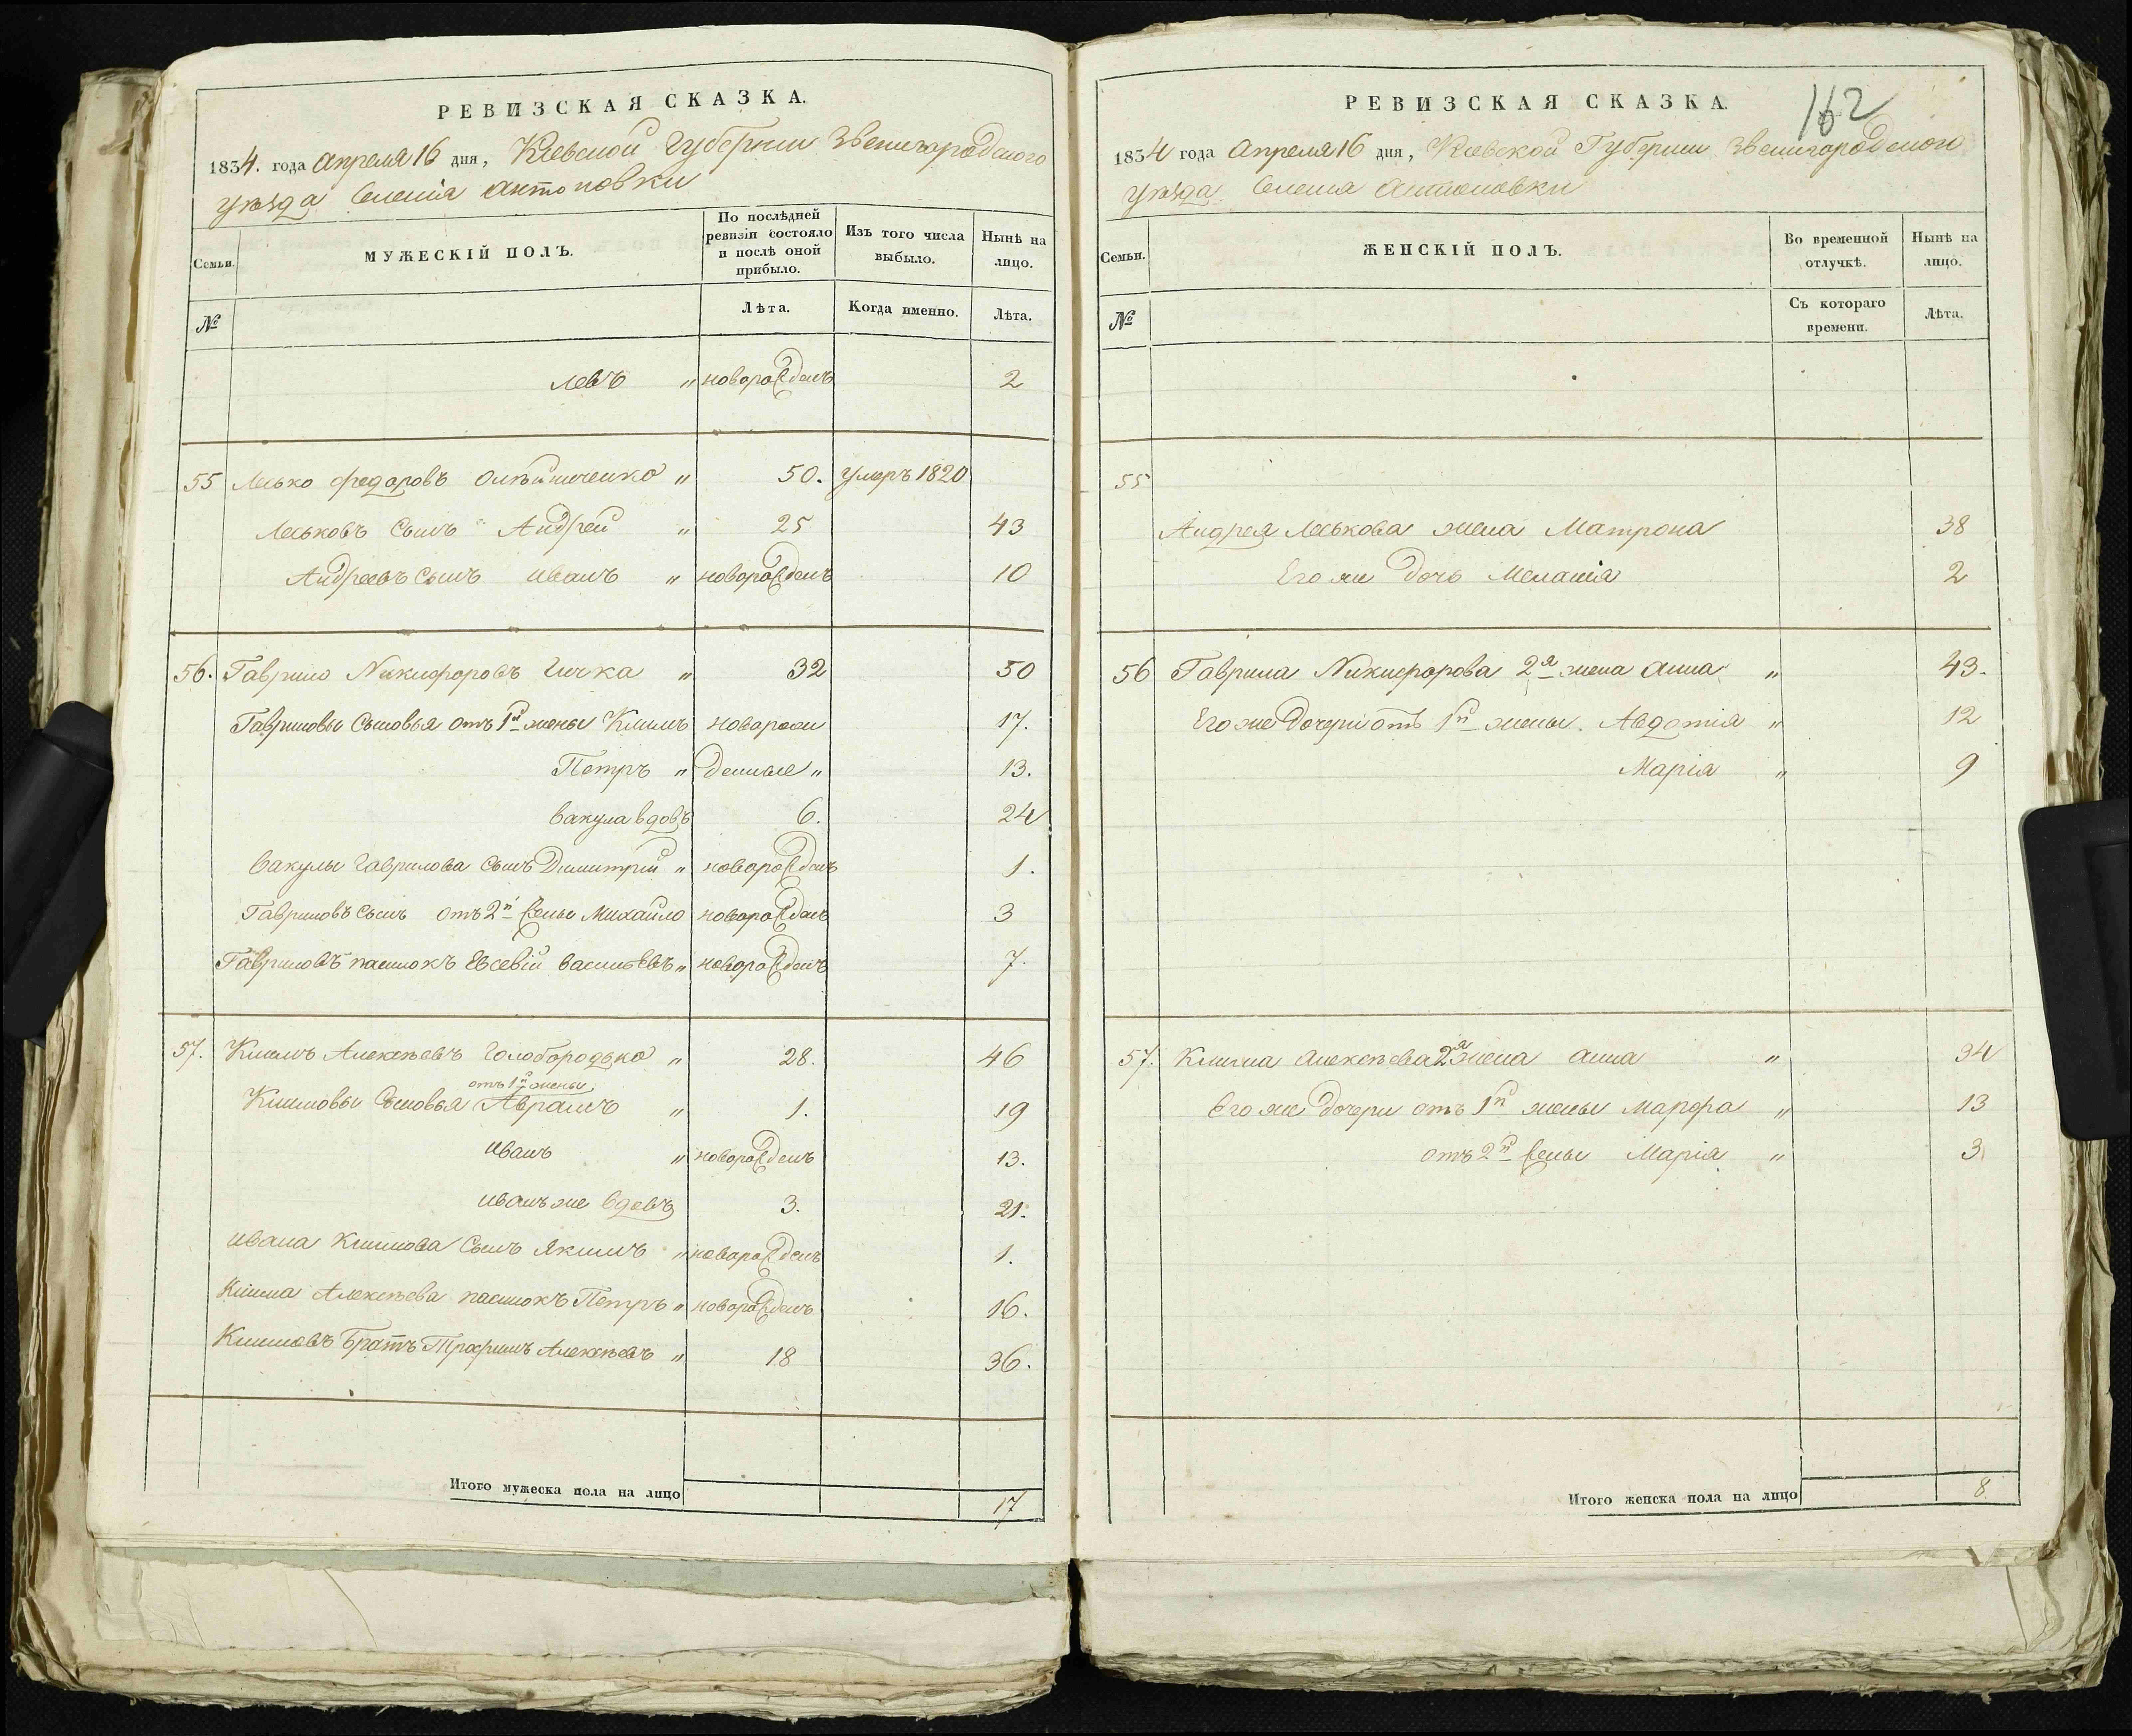 РЕВИЗСКАЯ СКАЗКА.
1834. года апреля 16 дня, Киевской Губернии Звенигородского
уѣзда Селенія Антоновки
Семьи.
МУЖЕСКІЙ ПОЛЪ.
По послѣдней ревизіи состояло и послѣ оной прибыло.
Изъ того числа выбыло.
Нынѣ на лицо.
№
Лѣта.
Когда именно.
Лѣта.
Левъ " новорожденъ 2
55 Лесько Федоровъ Олѣйниченко " 50. умеръ 1820
Леськовъ Сынъ Андрей " 25 43
Андреевъ Сынъ Иванъ " новорожденъ 10
56. Гаврило Никифоровъ Гичка " 32 50
Гавриловы Сыновья отъ 1й жены Климъ новорож 17.
Петръ " денные " 13.
Вакула вдовъ 6. 24
Вакулы Гаврилова Сынъ Димитрій " новорожденъ 1.
Гавриловъ Сынъ отъ 2й жены Михайло новорожденъ 3
Гавриловъ пасынокъ Евсевій Васильевъ " новорожденъ 7.
57. Климъ Алексѣевъ Голобородько " 28. 46
отъ 1й жены
Климовы Сыновья Авраамъ " 1. 19
Иванъ " новорожденъ 13.
Иванъ же вдовъ 3. 21.
Ивана Климова Сынъ Якимъ " новорожденъ 1.
Клима Алексѣева пасынокъ Петръ " новорожденъ 16.
Климовъ Братъ Трофимъ Алексѣевъ " 18 36.
Итого мужеска пола на лицо 17
162
РЕВИЗСКАЯ СКАЗКА.
1834 года Апреля 16 дня, Киевской Губернии Звенигородского
уѣзда Селенія Антоновки
Семьи.
ЖЕНСКІЙ ПОЛЪ.
Во временной отлучкѣ.
Нынѣ на лицо.
№
Съ котораго времени.
Лѣта.
55
Андрея Леськова жена Матрона 38
Его же дочь Меланія 2
56 Гаврила Никифорова 2я жена Анна " 43.
Его же Дочери отъ 1й жены Авдотія " 12
Марія " 9
57. Клима Алексѣева 2я жена Анна " 34
Его же Дочери отъ 1й жены Марфа " 13
отъ 2й жены Марія " 3
Итого женска пола на лицо 8